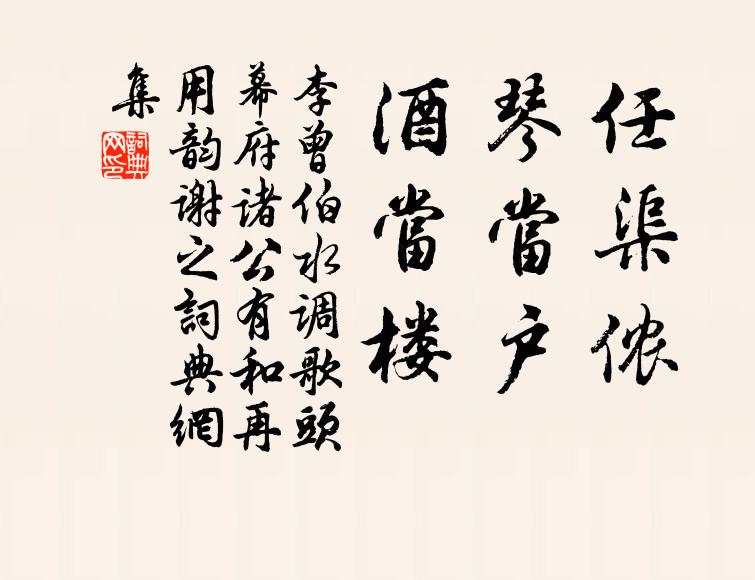 任渠侬
琴當户
酒當楼
李曾伯水调歌頭
幕府诸公有和再
用韵谢之詞典網
集
詞典网印